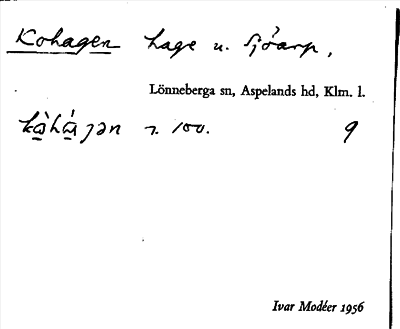 Kohagen hage u. Sjöarp,
Lönneberga sn, Aspelands hd, Klm. l.
9
Ivar Modéer 1956